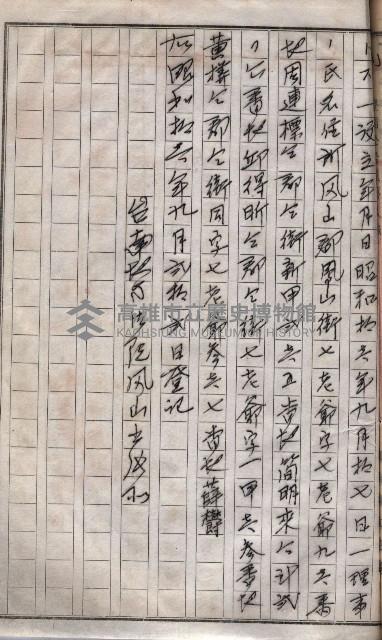 一設立年月日昭和拾六年九月拾七日一理事
ノ氏名住所鳳山郡鳳山街七老爺字七老爺九六番
地周連標仝郡仝街新甲弍六五番地簡明來仝弍弍
仝番地邱得昕仝郡仝街七老爺字一甲六叁番地
黄擇仝郡仝街同字七老爺叁六七番地薛欝
昭和拾六年九月弍拾弍日登記
台南地方法院鳳山出張所
高雄市立歷史博物館
KAOHSIUNG MUSEUM OF HISTORY